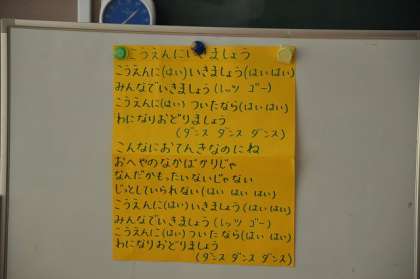 こうえんにいきましょう
こうえんに(はい)いきましょう(はいはい)
みんなでいきましょう(レッツ ゴー)
こうえんに(はい)ついたなら(はいはい)
わになりおどりましょう
(ダンス ダンス ダンス)
こんなにおてんきなのにね
おへやのなかばかりじゃ
なんだかもったいないじゃない
じっとしていられない(はい はい はい)
こうえんに(はい)いきましょう(はいはい)
みんなでいきましょう(レッツ ゴー)
こうえんに(はい)ついたなら(はい はい)
わになりおどりましょう
(ダンス ダンス ダンス)